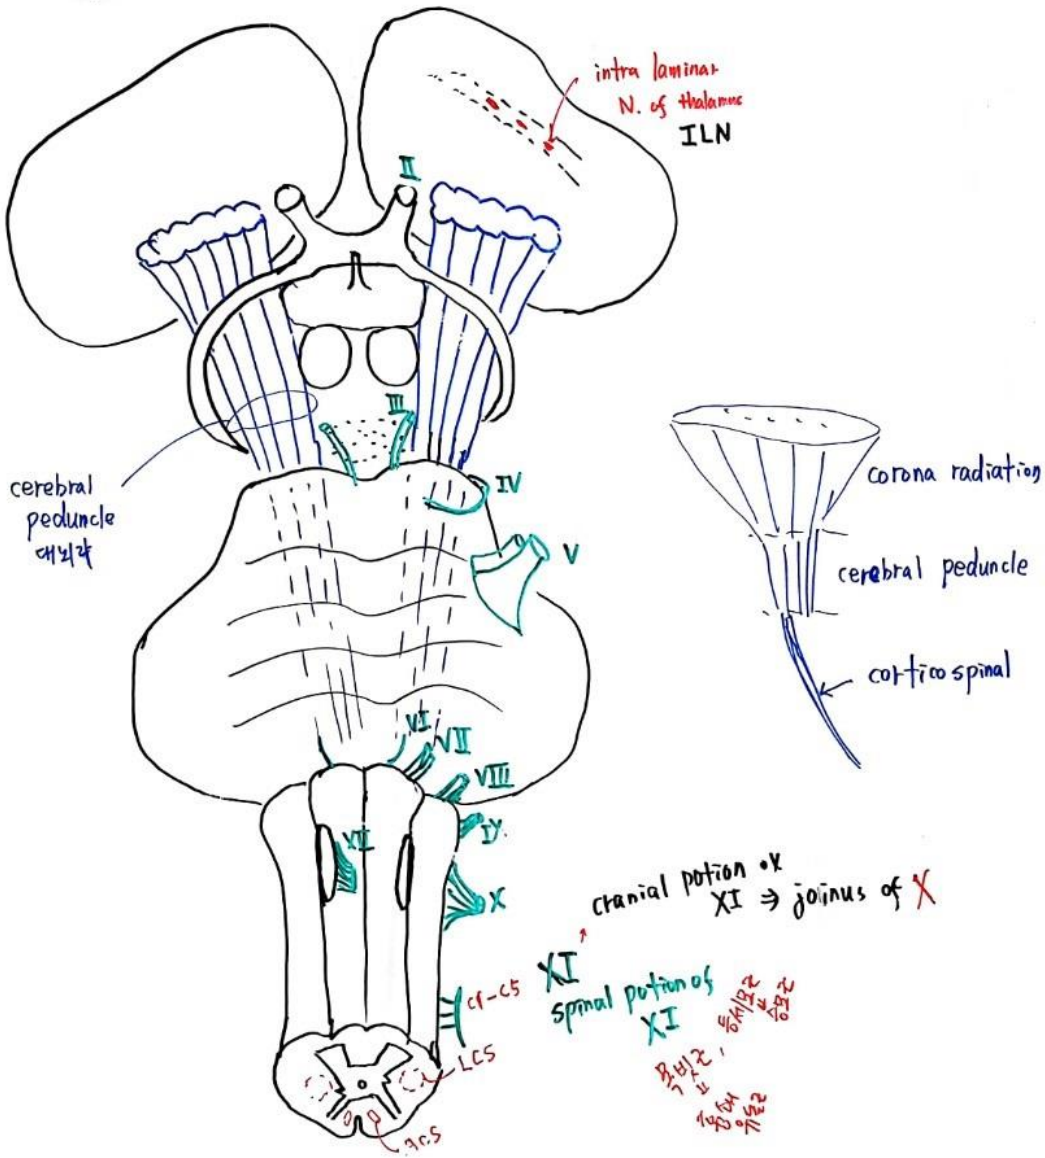 intra laminar
N. of thalamus
ILN
II
III
cerebral
peduncle
대뇌각
IV
V
corona radiation
cerebral peduncle
corticospinal
VI
VII
VIII
IX
XII
X
cranial potion of
XI ⇒ joinus of X
XI
spinal potion of
XI
C1-C5
승모근
목빗근,
LCS